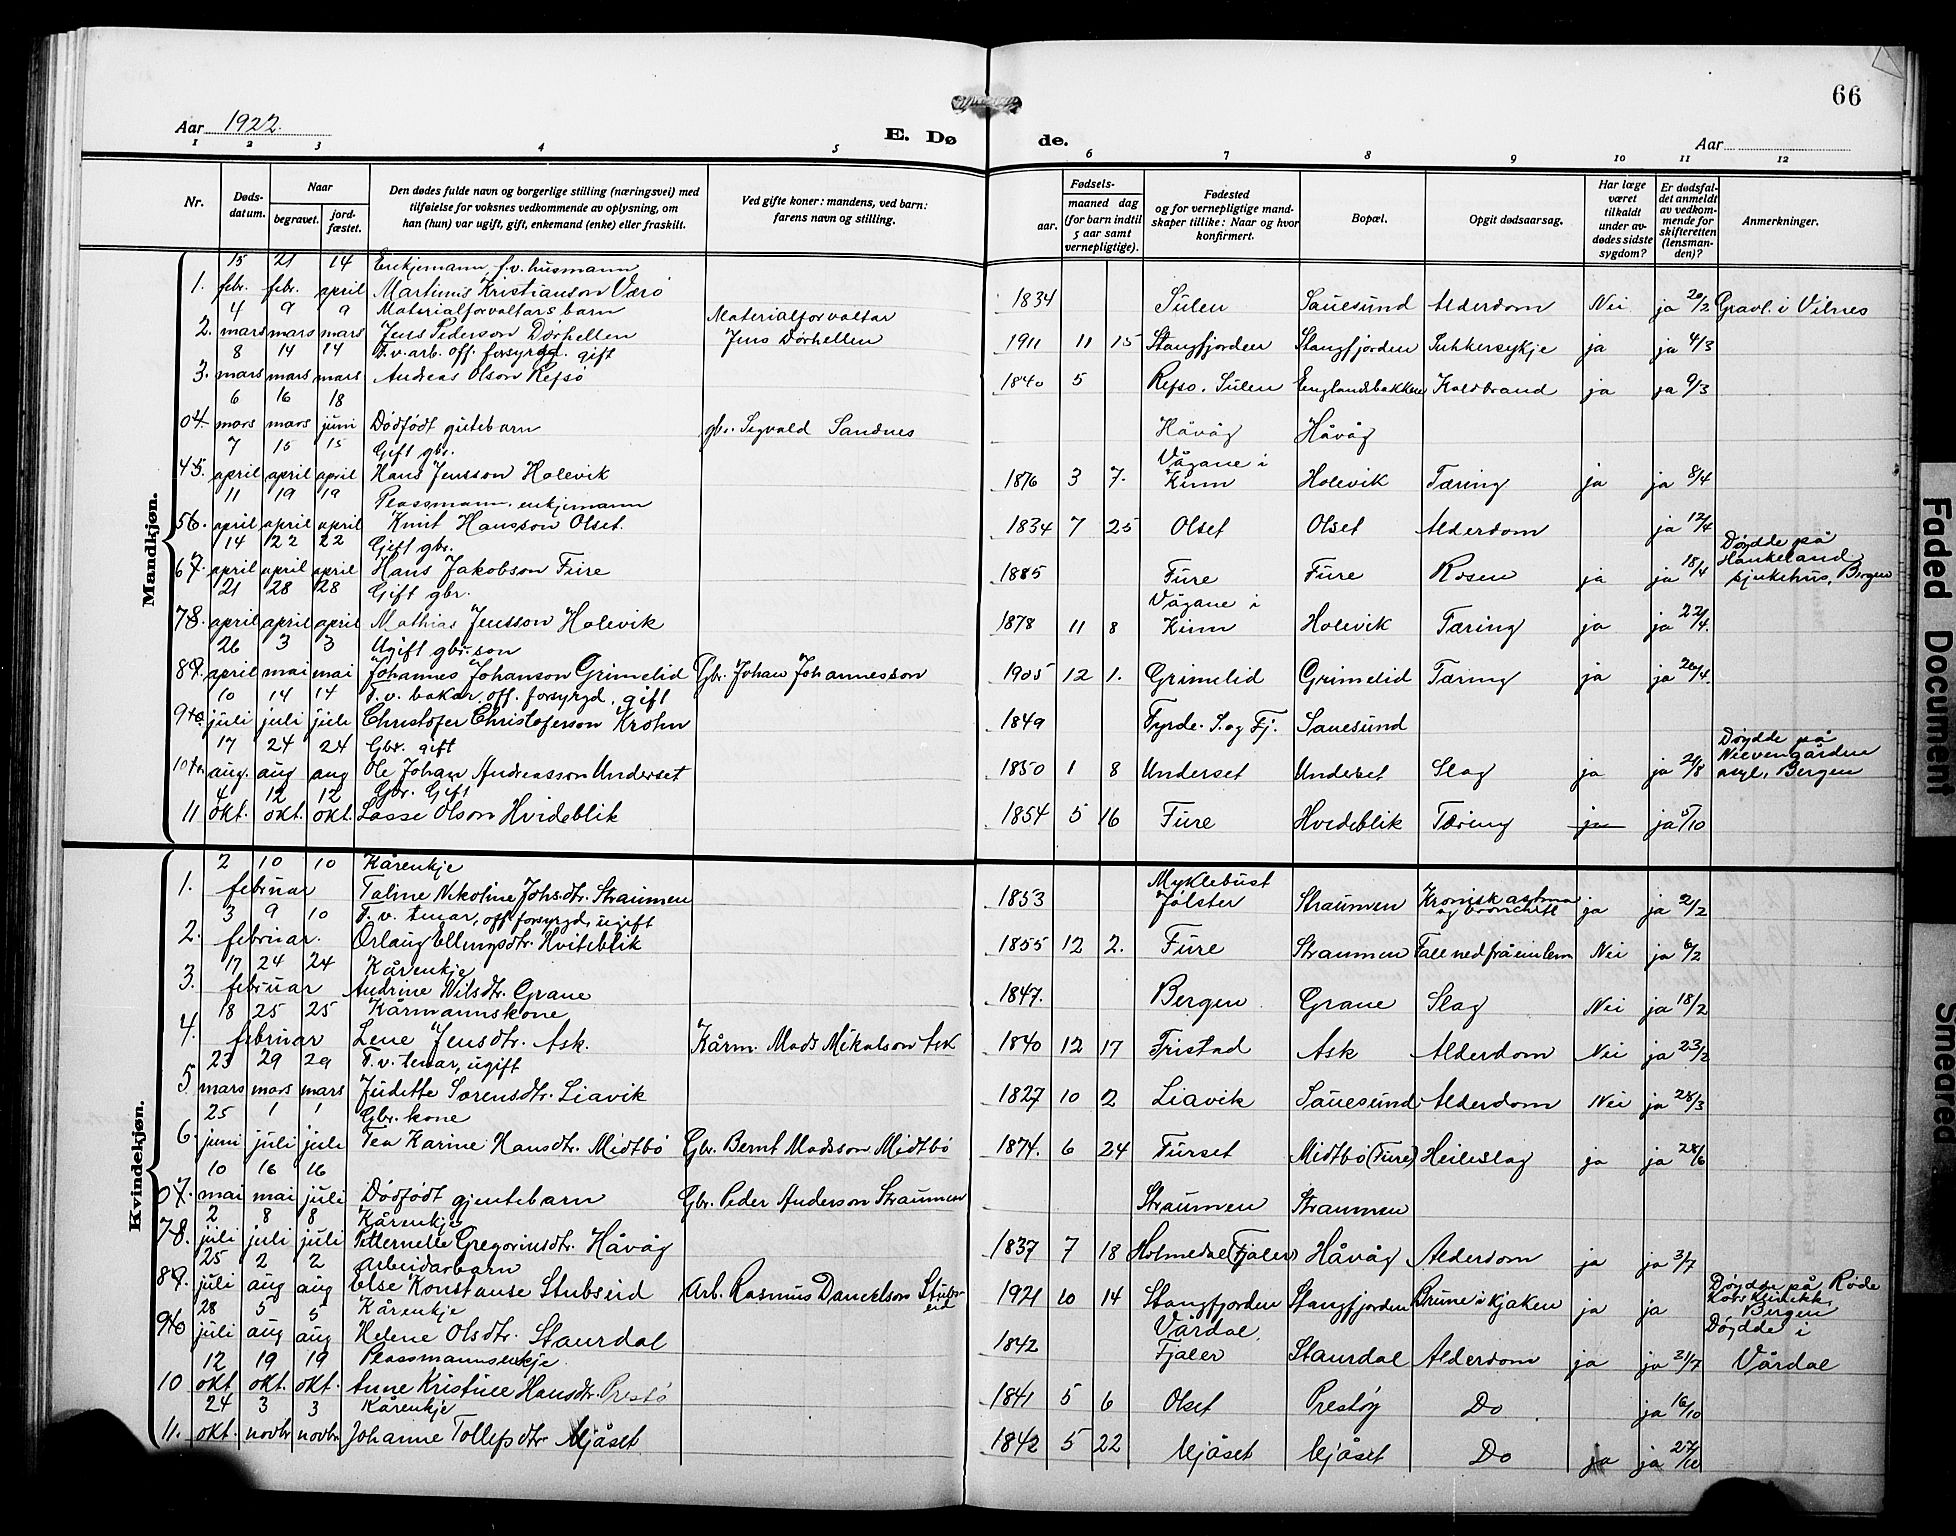 66
Aar 1922.
E. Dø
de.
Aar
1 2 3 4 5 6 7 8 9 10 11 12
Nr.
Døds-
datum.
Naar
begravet.
jord-
fæstet.
Den dødes fulde navn og borgerlige stilling (næringsvei) med
tilføielse for voksnes vedkommende av oplysning, om
han (hun) var ugift, gift, enkemand (enke) eller fraskilt.
Ved gifte koner: mandens, ved barn:
farens navn og stilling.
Fødsels-
aar. maaned dag
(for barn indtil
5 aar samt
vernepligtige).
Fødested
og for vernepligtige mand-
skaper tillike: Naar og hvor
konfirmert.
Bopæl.
Opgit dødsaarsag.
Har læge
været
tilkaldt
under av-
dødes sidste
sygdom?
Er dødsfal-
det anmeldt
av vedkom-
mende for
skifteretten
(lensman-
den)?
Anmerkninger.
Mandkjøn.
15 21 14 Enkjemann, f.v. husmann
1. febr. febr. april Martinus Kristianson Værö 1834 Sulen Sauesund Alderdom Nei ja 20/2 Gravl. i Vilnes
4 9 9 Materialforvaltars barn Materialforvaltar
2. mars mars mars Jens Pederson Dørhellen Jens Dörhellen 1911 11 15 Stangfjorden Stangfjorden Sukkersykje ja ja 4/3
8 14 14 F.v. arb. off. forsyrgd. gift
3. mars mars mars Andreas Olson Refsö 1840 5 Refsö, Sulen Englandsbakken Koldbrand ja ja 9/3
6 16 18
04. mars mars juni Dödfödt gutebarn gbr. Sigvald Sandnes Håvåg Håvåg
7 15 15 Gift gbr. Vågane i
45. april april april Hans Jensson Holevik 1876 3 7. Kinn Holevik Tæring ja ja 8/4
11 19 19 Plassmann, enkjemann
56. april april april Knut Hansson Olset. 1834 7 25 Olset Olset Alderdom ja 12/4
14 22 22 Gift gbr. Döydde på
67. april april april Hans Jakobson Fure 1885 Fure Fure Rosen ja ja 18/4 Haukeland
sjukehus, Bergen
21 28 28 Gift gbr. Vågane i
78. april april april Mathias Jensson Holevik 1878 11 8 Kinn Holevik Tæring ja ja 22/4.
26 3 3 Ugift gbr. son
89. april mai mai Johannes Johanson Grimelid Gbr. Johan Johannesson 1905 12 1. Grimelid Grimelid Tæring ja ja 26/4.
10 14 14 F.v. bakar, off. forsyrgd, gift
910. juli juli juli Christofer Christoferson Krohn 1849 Fyrde. S. og Fj. Sauesund
17 24 24 Gbr. gift Döydde på
10 aug. aug aug Ole Johan Andreasson Underset 1850 1 8 Underset Underset Slag ja ja 21/8 Nevengården
asyl, Bergen
4 12 12 Gbr. Gift
11 okt. okt. okt. Lasse Olson Hvideblik 1854 5 16 Fure Hvideblik Tæring ja ja 5/10
Kvindekjøn.
2 10 10 Kårenkje Myklebust
1. februar Taline Nikoline Johsdtr. Straumen 1853 Jölster Straumen Kronisk astma
og bronchitt ja ja 2/2
3 9 10 F.v. tenar, off. forsyrgd, ugift
2. februar. Orlaug Ellingsdtr. Hviteblik 1855 12 2. Fure Straumen Fall ned frå ein lem Nei ja 6/2
17 24 24 Kårenkje
3. februar Andrine Nilsdtr. Grane 1847. Bergen Grane Slag Nei ja 18/2
18 25 25 Kårmannskone
4. februar Lene Jensdtr. Ask. Kårm. Mads Mikalson Ask 1840 12 17 Tristad Ask Alderdom Nei ja 23/2
23 29 29 F.v. tenar, ugift
5 mars mars mars Juditte Sörensdtr. Liavik 1827 10 2 Liavik Sauesund Alderdom Nei ja 28/3
25 1 1 Gbr. kone
6. juni juli juli Tea Karine Hansdtr. Midtbö Gbr. Bernt Madsson Midtbö 1874. 6 24 Furset Midtbö (Fure) Heileslag ja ja 28/6
10 16 16
07. mai mai juli Dödfödt gjentebarn Gbr. Peder Anderson Straumen Straumen Straumen
2 8 8 Kårenkje
78. juli juli juli Petternelle Gregoriusdtr. Håvåg 1837 7 18 Holmedal (Fjaler) Håvåg Alderdom ja ja 3/7
25 2 2 Arbeidarbarn Döydde på Røde
89. juli aug aug Else Konstanse Stubseid Arb. Rasmus Danielson Stubs-
eid 1921 10 14 Stangfjorden Stangfjorden Brune i kjaken ja ja Kors Klinikk,
Bergen
28 5 5 Kårenkje Vårdal, Döydde i
910 juli aug aug Helene Olsdtr. Staurdal 1842 Fjaler Staurdal Alderdom ja ja 31/7 Vårdal
12 19 19 Plassmannsenkje
10 okt okt. okt. Anne Kristine Hansdtr. Prestö 1841 5 6 Olset Prestöy Do ja 16/10
24 3 3 Kårenkje
11. okt. novbr. novbr. Johanne Tollefsdtr. Mjåset 1842 5 22 Mjåset Mjåset Do ja ja 27/10
Faded Document
Smeared